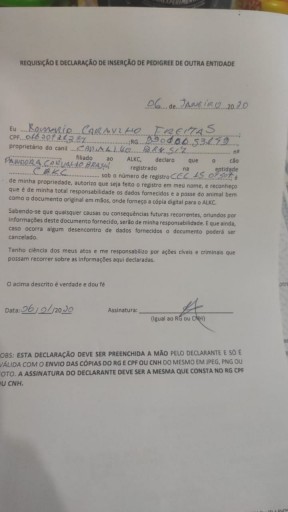 REQUISIÇÃO E DECLARAÇÃO DE INSERÇÃO DE PEDIGREE DE OUTRA ENTIDADE
06 de JANEIRO 2020
Eu CARVALHO FREITAS
CPF RG
proprietário do canil CARVALHO
filiado ao ALKC, declaro que o cão
PANDORA registrado na entidade
CBKC sob o número de registro
de minha propriedade, autorizo que seja feito o registro em meu nome, e reconheço
que é de minha total responsabilidade os dados fornecidos e a posse do animal bem
como o documento original em mãos, onde forneço a cópia digital para o ALKC.
Sabendo-se que qualquer causas ou consequências futuras recorrentes, oriundos por
informações deste documento fornecido, serão de minha responsabilidade. E que ainda,
caso ocorra algum desencontro de dados fornecidos o documento poderá ser
cancelado.
Tenho ciência dos meus atos e me responsabilizo por ações cíveis e criminais que
possam recorrer as informações aqui declaradas.
O acima descrito é verdade e dou fé.
Data: 06/01/2020 Assinatura:
(Igual ao RG ou CNH)
OBS: ESTA DECLARAÇÃO DEVE SER PREENCHIDA A MÃO PELO DECLARANTE E SÓ É
VÁLIDA COM O ENVIO DAS CÓPIAS DO RG E CPF OU CNH DO MESMO EM JPEG, PNG OU
FOTO. A ASSINATURA DO DECLARANTE DEVE SER A MESMA QUE CONSTA NO RG CPF
OU CNH.